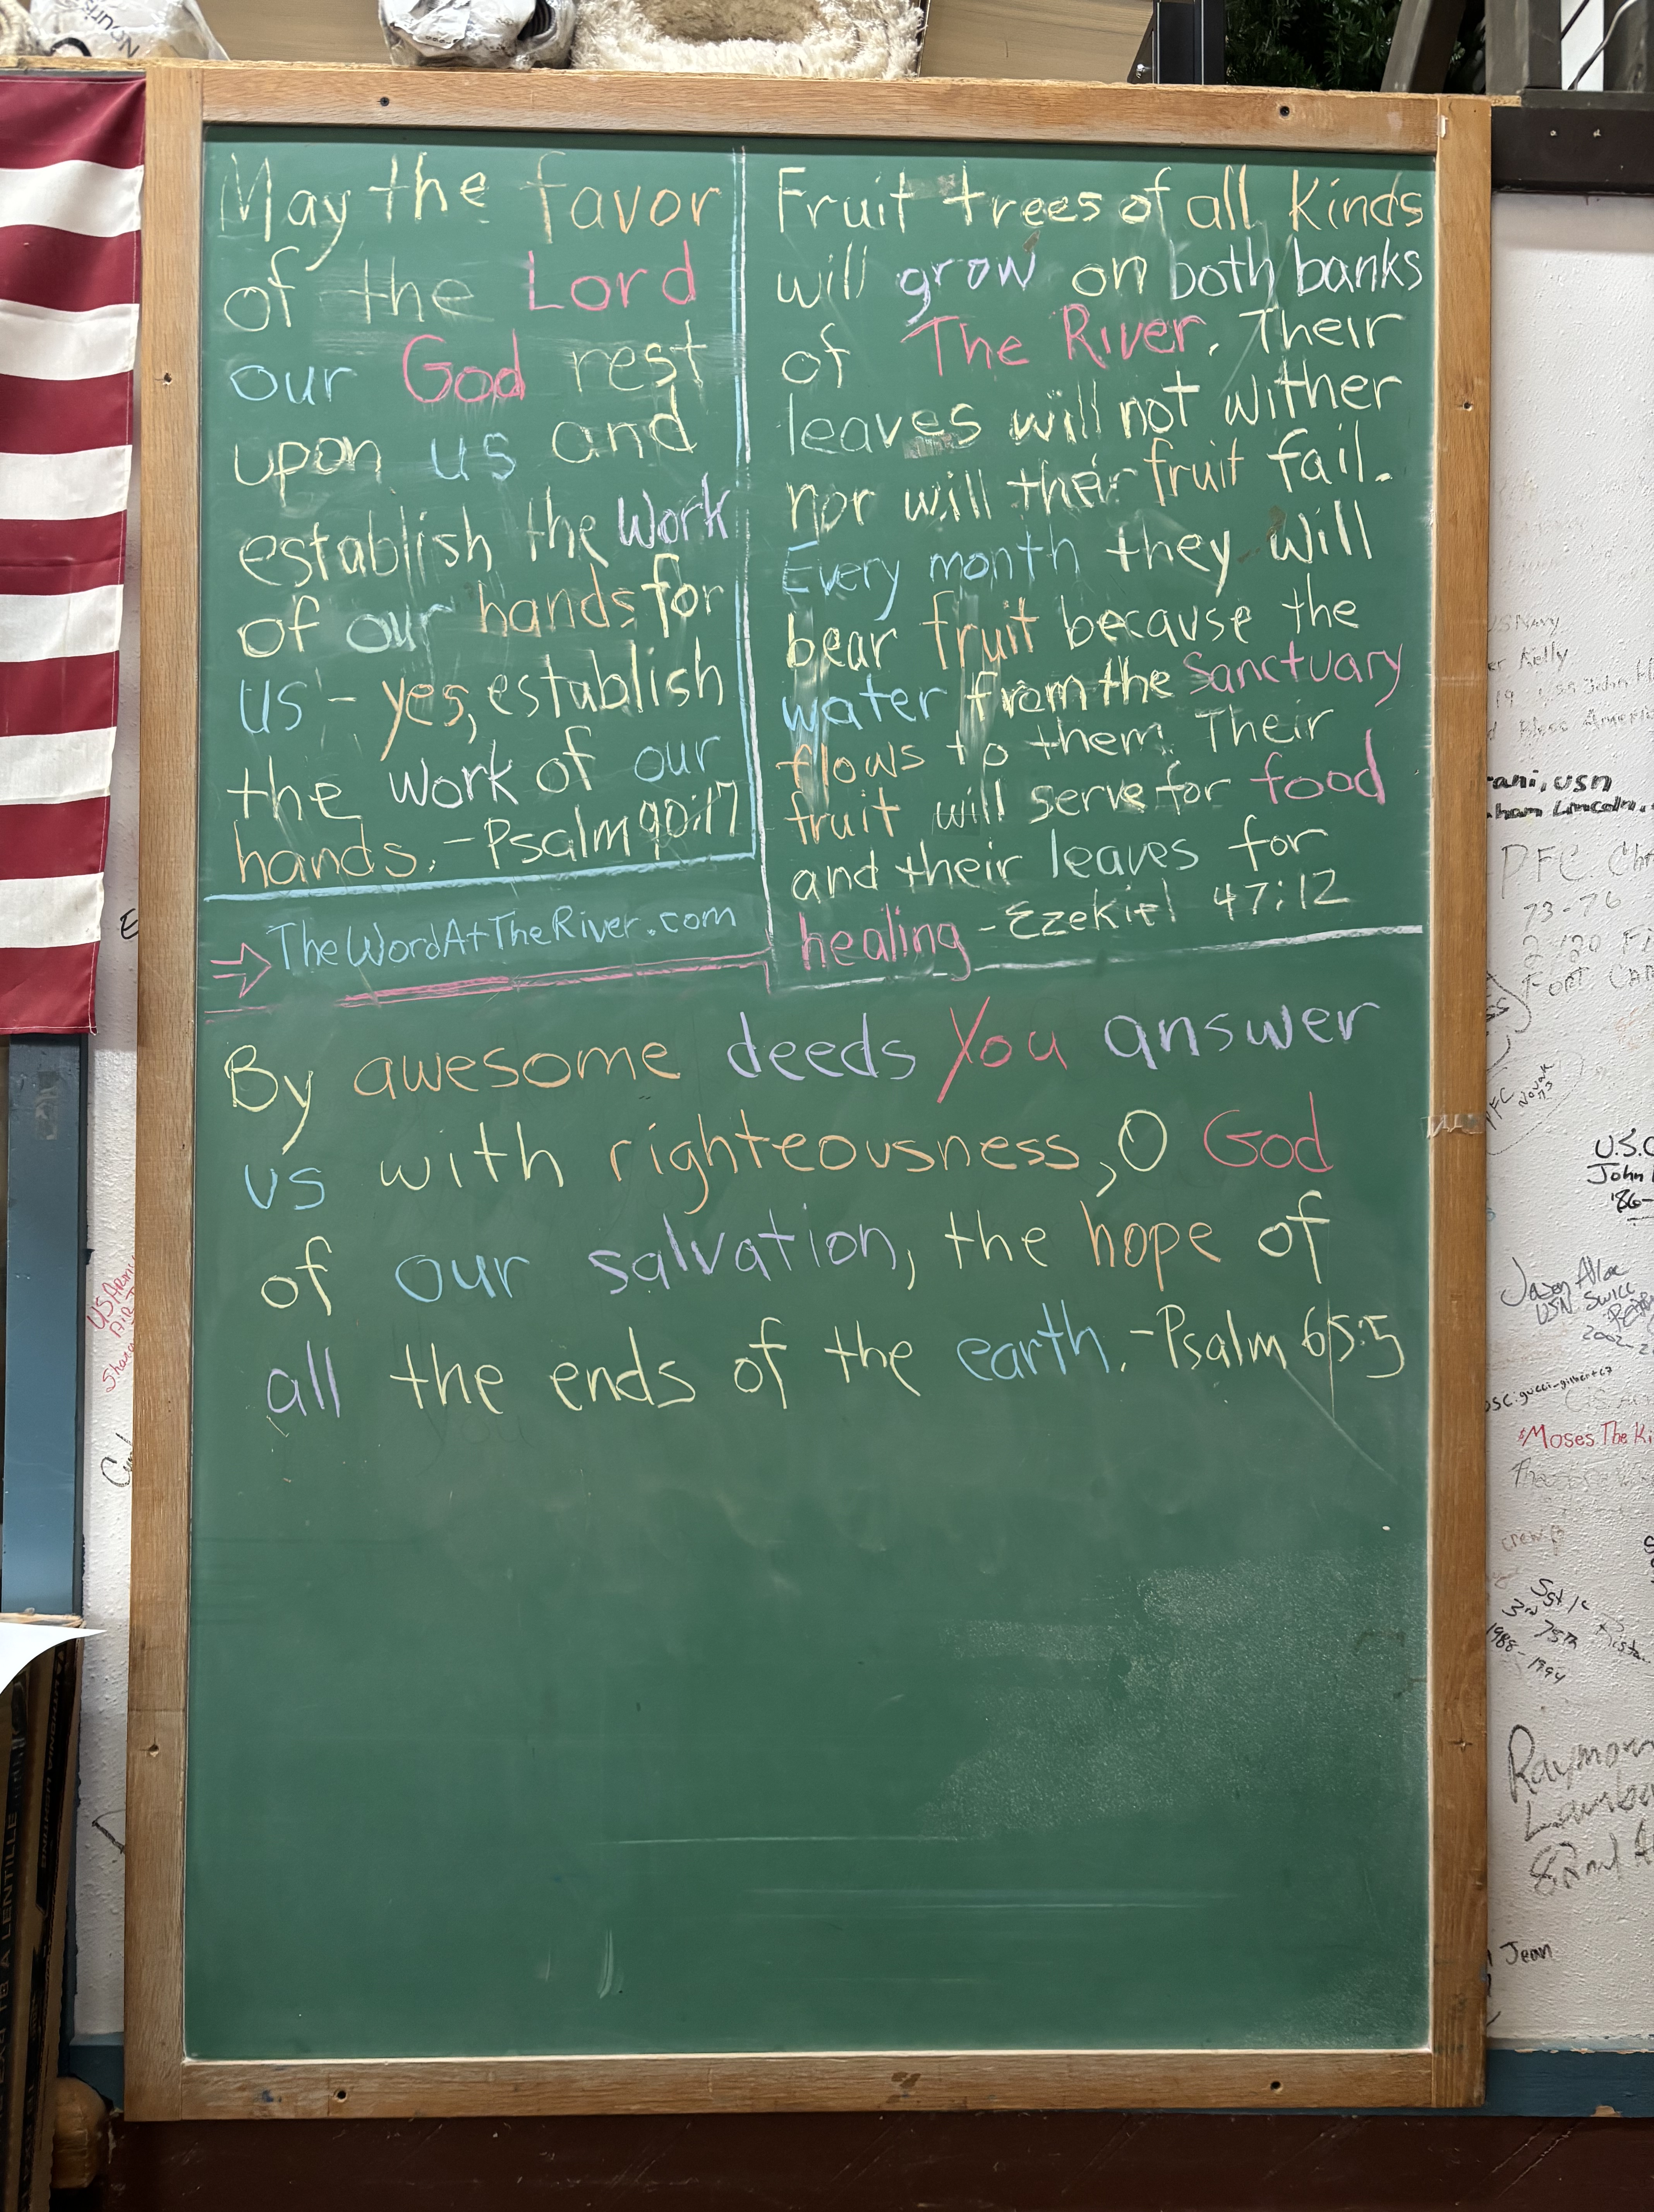 May the favor
of the Lord
our God rest
upon us and
establish the work
of our hands for
us - yes, establish
the work of our
hands. - Psalm 90:17
TheWordAtTheRiver.com
Fruit trees of all kinds
will grow on both banks
of The River. Their
leaves will not wither
nor will their fruit fail.
Every month they will
bear fruit because the
water from the Sanctuary
flows to them. Their
fruit will serve for food
and their leaves for
healing - Ezekiel 47:12
By awesome deeds You answer
us with righteousness, O God
of our salvation, the hope of
all the ends of the earth. - Psalm 65:5
US Navy
Kelly
Bless America
USN
Lincoln
PFC
73-76
U.S.
John
'86-
Jason
USN
2002-
Moses The
3rd 75th
1988-1994
Jean
US Army
A LENTILLE